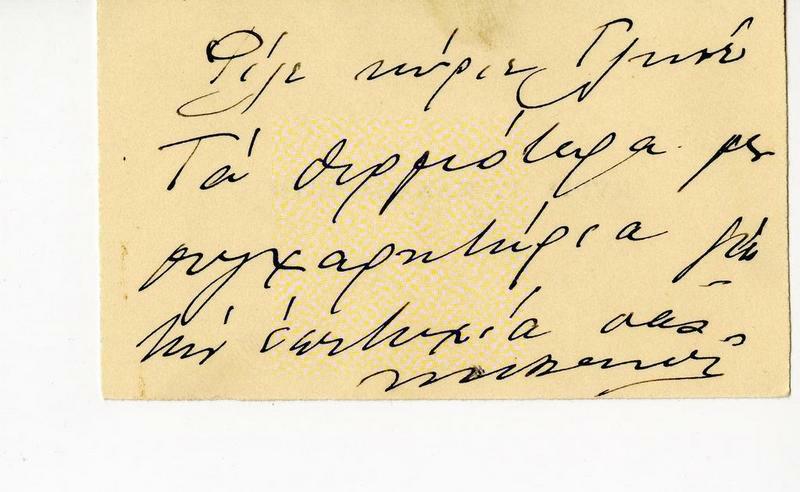 Φίλε κύριε
Τά θερμότερα μου
συγχαρητήρια γιά
τήν ἐπιτυχία σας